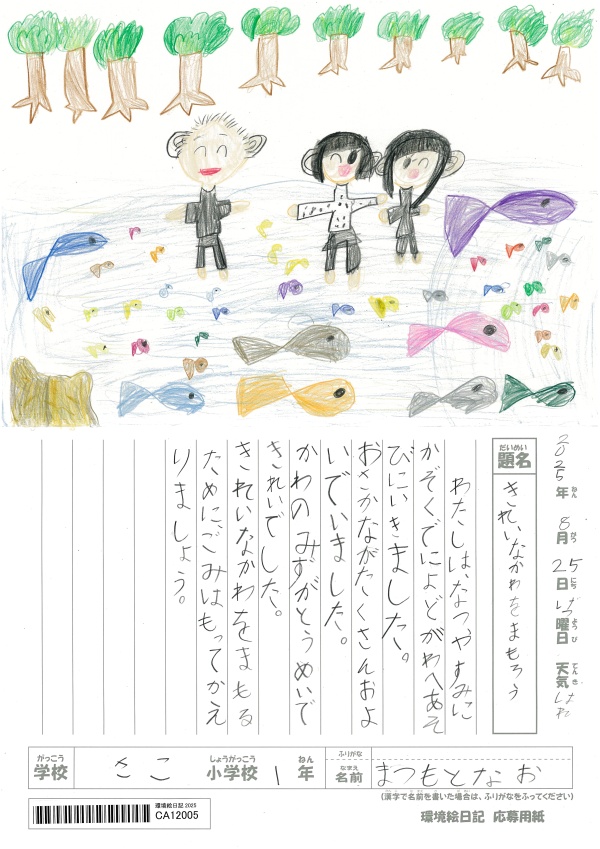 2025年 8月 25日 げつ曜日 天気 はれ
ねん がつ にち ようび てんき
だいめい
題名
きれいなかわをまもろう
わたしは、なつやすみに
かぞくでによどがわへあそ
びにいきました。
おさかながたくさんおよ
いでいました。
かわのみずがとうめいで
きれいでした。
きれいなかわをまもる
ために、ごみはもってかえ
りましょう。
がっこう
学校
さこ
しょうがっこう
小学校
1
ねん
年
ふりがな
なまえ
名前
まつもとなお
(漢字で名前を書いた場合は、ふりがなをふってください)
環境絵日記 2025
CA12005
環境絵日記 応募用紙